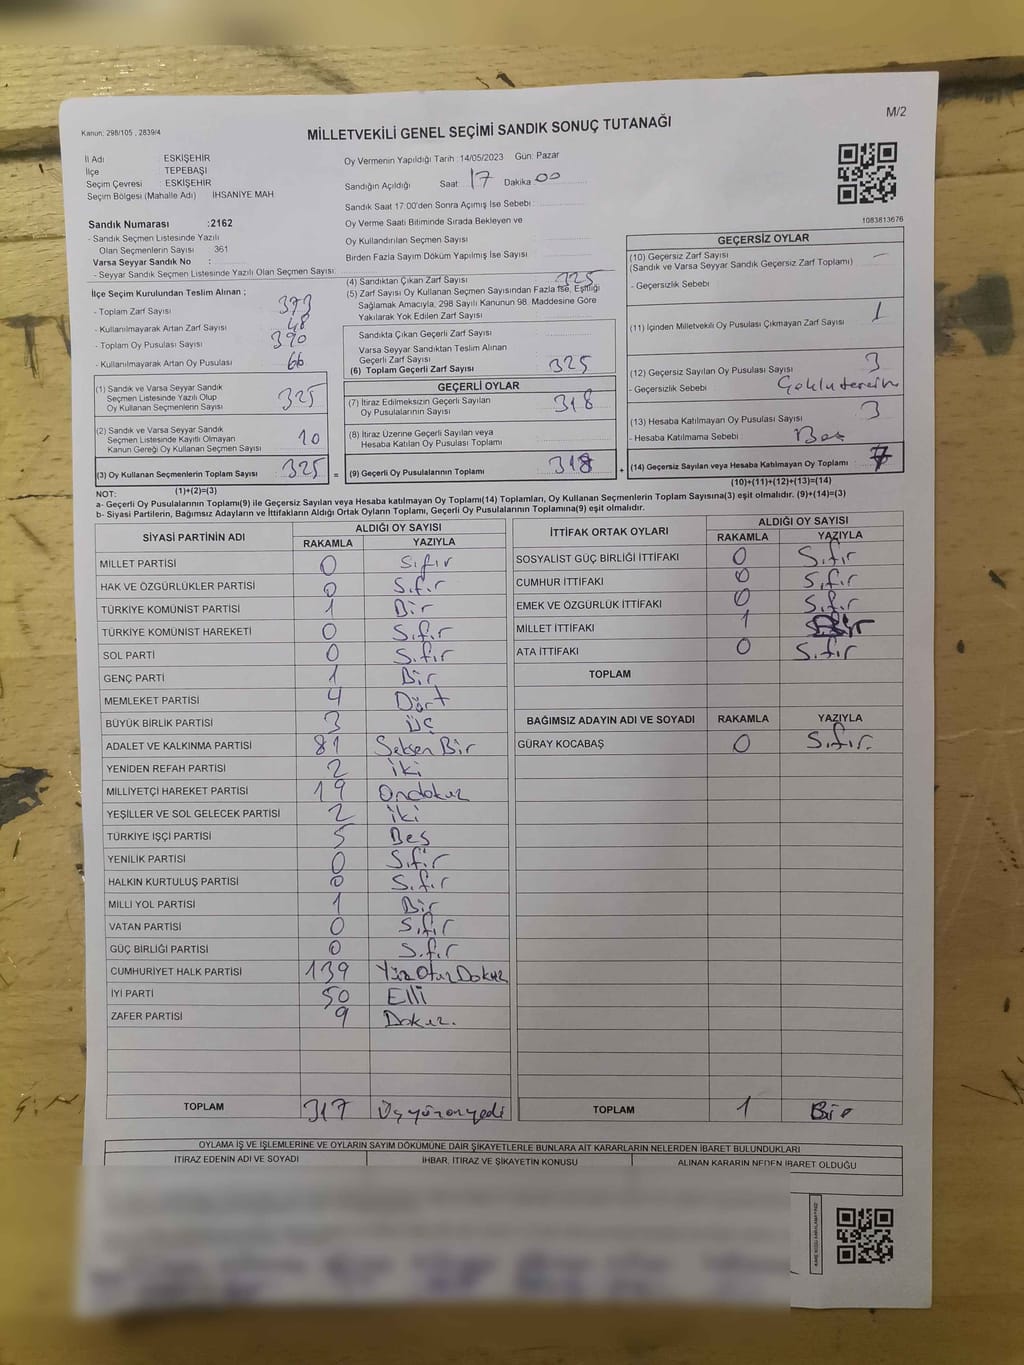 M/2
Kanun: 298/105 , 2839/4
MİLLETVEKİLİ GENEL SEÇİMİ SANDIK SONUÇ TUTANAĞI
İl Adı ESKİŞEHİR
İlçe TEPEBAŞI
Seçim Çevresi : ESKİŞEHİR
Seçim Bölgesi (Mahalle Adı) İHSANİYE MAH
Sandık Numarası :2162
- Sandık Seçmen Listesinde Yazılı
Olan Seçmenlerin Sayısı : 361
Varsa Seyyar Sandık No :
- Seyyar Sandık Seçmen Listesinde Yazılı Olan Seçmen Sayısı:
Oy Vermenin Yapıldığı Tarih :14/05/2023 Gün: Pazar
Sandığın Açıldığı Saat: 17 Dakika: 00
Sandık Saat 17:00'den Sonra Açımış İse Sebebi :
Oy Verme Saati Bitiminde Sırada Bekleyen ve
Oy Kullandırılan Seçmen Sayısı :
Birden Fazla Sayım Döküm Yapılmış İse Sayısı :
1083813676
İlçe Seçim Kurulundan Teslim Alınan ;
- Toplam Zarf Sayısı : 373
- Kullanılmayarak Artan Zarf Sayısı : 48
- Toplam Oy Pusulası Sayısı : 390
- Kullanılmayarak Artan Oy Pusulası : 66
(1) Sandık ve Varsa Seyyar Sandık
Seçmen Listesinde Yazılı Olup
Oy Kullanan Seçmenlerin Sayısı : 325
(2) Sandık ve Varsa Seyyar Sandık
Seçmen Listesinde Kayıtlı Olmayan
Kanun Gereği Oy Kullanan Seçmen Sayısı : 10
(3) Oy Kullanan Seçmenlerin Toplam Sayısı : 325
(1)+(2)=(3)
(4) Sandıktan Çıkan Zarf Sayısı : 325
(5) Zarf Sayısı Oy Kullanan Seçmen Sayısından Fazla İse, Eşitliği
Sağlamak Amacıyla, 298 Sayılı Kanunun 98. Maddesine Göre
Yakılarak Yok Edilen Zarf Sayısı :
Sandıkta Çıkan Geçerli Zarf Sayısı :
Varsa Seyyar Sandıktan Teslim Alınan
Geçerli Zarf Sayısı :
(6) Toplam Geçerli Zarf Sayısı : 325
GEÇERLİ OYLAR
(7) İtiraz Edilmeksizin Geçerli Sayılan
Oy Pusulalarının Sayısı : 318
(8) İtiraz Üzerine Geçerli Sayılan veya
Hesaba Katılan Oy Pusulası Toplamı :
= (9) Geçerli Oy Pusulalarının Toplamı : 318 +
GEÇERSİZ OYLAR
(10) Geçersiz Zarf Sayısı : —
(Sandık ve Varsa Seyyar Sandık Geçersiz Zarf Toplamı)
- Geçersizlik Sebebi :
(11) İçinden Milletvekili Oy Pusulası Çıkmayan Zarf Sayısı : 1
(12) Geçersiz Sayılan Oy Pusulası Sayısı : 3
- Geçersizlik Sebebi : Çoklu tercih
(13) Hesaba Katılmayan Oy Pusulası Sayısı : 3
- Hesaba Katılmama Sebebi : Boş
(14) Geçersiz Sayılan veya Hesaba Katılmayan Oy Toplamı : 7
(10)+(11)+(12)+(13)=(14)
NOT:
a- Geçerli Oy Pusulalarının Toplamı(9) ile Geçersiz Sayılan veya Hesaba katılmayan Oy Toplamı(14) Toplamları, Oy Kullanan Seçmenlerin Toplam Sayısına(3) eşit olmalıdır. (9)+(14)=(3)
b- Siyasi Partilerin, Bağımsız Adayların ve İttifakların Aldığı Ortak Oyların Toplamı, Geçerli Oy Pusulalarının Toplamına(9) eşit olmalıdır.
SİYASİ PARTİNİN ADI ALDIĞI OY SAYISI
RAKAMLA YAZIYLA
MİLLET PARTİSİ 0 Sıfır
HAK VE ÖZGÜRLÜKLER PARTİSİ 0 Sıfır
TÜRKİYE KOMÜNİST PARTİSİ 1 Bir
TÜRKİYE KOMÜNİST HAREKETİ 0 Sıfır
SOL PARTİ 0 Sıfır
GENÇ PARTİ 1 Bir
MEMLEKET PARTİSİ 4 Dört
BÜYÜK BİRLİK PARTİSİ 3 Üç
ADALET VE KALKINMA PARTİSİ 81 Seksen Bir
YENİDEN REFAH PARTİSİ 2 İki
MİLLİYETÇİ HAREKET PARTİSİ 19 Ondokuz
YEŞİLLER VE SOL GELECEK PARTİSİ 2 İki
TÜRKİYE İŞÇİ PARTİSİ 5 Beş
YENİLİK PARTİSİ 0 Sıfır
HALKIN KURTULUŞ PARTİSİ 0 Sıfır
MİLLİ YOL PARTİSİ 1 Bir
VATAN PARTİSİ 0 Sıfır
GÜÇ BİRLİĞİ PARTİSİ 0 Sıfır
CUMHURİYET HALK PARTİSİ 139 Yüz Otuz Dokuz
İYİ PARTİ 50 Elli
ZAFER PARTİSİ 9 Dokuz.
TOPLAM 317 Üçyüzonyedi
İTTİFAK ORTAK OYLARI ALDIĞI OY SAYISI
RAKAMLA YAZIYLA
SOSYALİST GÜÇ BİRLİĞİ İTTİFAKI 0 Sıfır
CUMHUR İTTİFAKI 0 Sıfır
EMEK VE ÖZGÜRLÜK İTTİFAKI 0 Sıfır
MİLLET İTTİFAKI 1 Bir
ATA İTTİFAKI 0 Sıfır
TOPLAM
BAĞIMSIZ ADAYIN ADI VE SOYADI RAKAMLA YAZIYLA
GÜRAY KOCABAŞ 0 Sıfır.
TOPLAM 1 Bir
OYLAMA İŞ VE İŞLEMLERİNE VE OYLARIN SAYIM DÖKÜMÜNE DAİR ŞİKAYETLERLE BUNLARA AİT KARARLARIN NELERDEN İBARET BULUNDUKLARI
İTİRAZ EDENİN ADI VE SOYADI İHBAR, İTİRAZ VE ŞİKAYETİN KONUSU ALINAN KARARIN NEDEN İBARET OLDUĞU